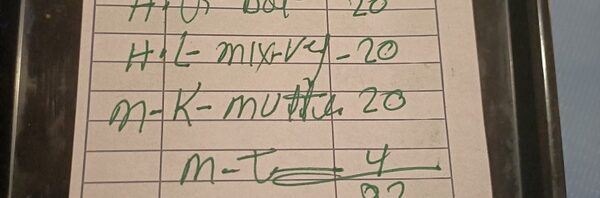 20
H·L- mix-vy - 20
M-K- mutter 20
M-T 4